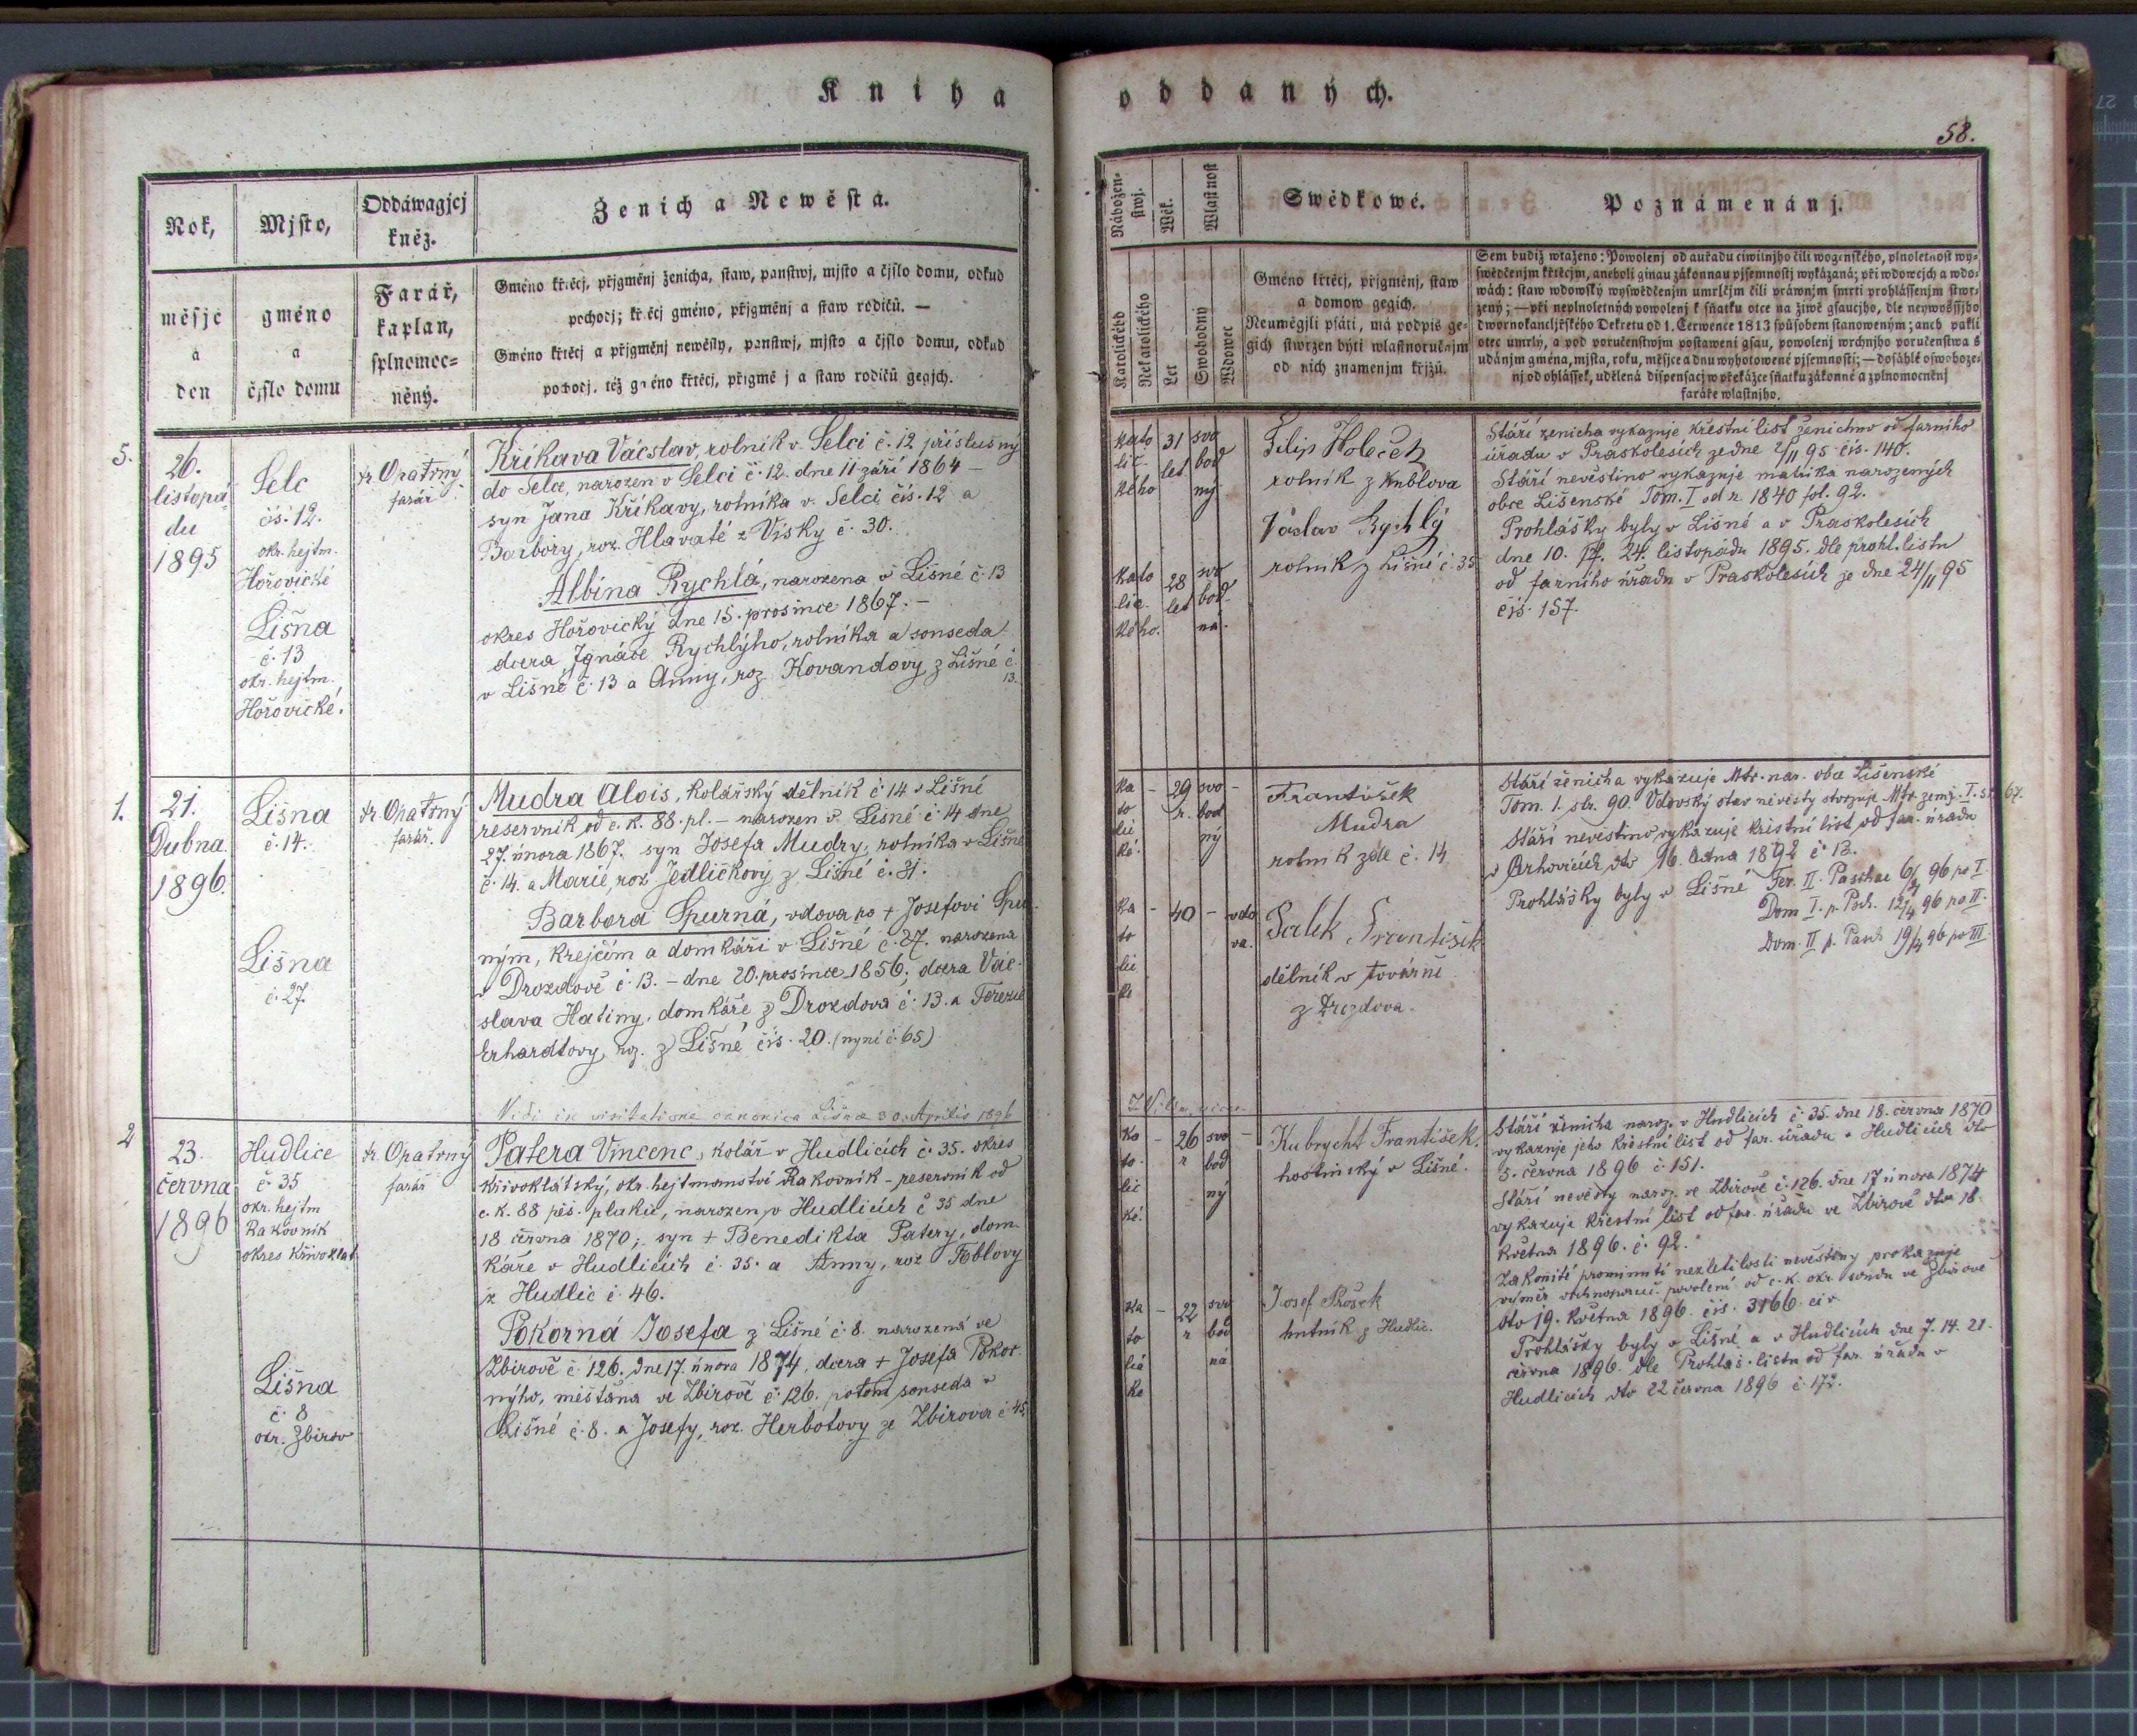 Kniha
oddaných.
58.
Rok,
měsjc
a
den
Mjsto,
gméno
a
čjslo domu
Oddáwagjcj
kněz.
Farář,
kaplan,
splnomoc=
něný.
Ženich a Newěsta.
Gméno křtěcj, přjgměnj ženicha, staw, panstwj, mjsto a čjslo domu, odkud
pochozj; křtěcj gméno, přjgměnj a staw rodičů. —
Gméno křtěcj a přjgměnj newěsty, panstwj, mjsto a čjslo domu, odkud
pochozj, též gméno křtěcj, přigměnj a staw rodičů gegjch.
Nábožen-
stwj.
Katolického
Nekatolického
Wěk.
Let
Wlastnost
Swobodný
Wdowec
Swědkowé.
Gméno křtěcj, přjgměnj, staw
a domow gegich.
Neuměgjli psáti, má podpis ge=
gich stwrzen býti wlastnoručnjm
od nich znamenjm křjžů.
Poznámenánj.
Sem budiž wtaženo: Powolenj od auřadu ciwilnjho čili wogenského, plnoletnost wy=
swědčenjm křtěcjm, aneboli ginau zákonnau pjsemnostj wykázaná; při wdowcjch a wdo=
wách: staw wdowský wyswědčenjm umrlčjm čili práwnjm smrti prohlássenjm stwr=
zený; —při neplnoletných powolenj k sňatku otce na žiwě gsaucjho, dle neywyššjho
dwornokancljřského Dekretu od 1. Čerwence 1813 spůsobem stanoweným; aneb pakli
otec umrlý, a pod poručenstwjm postaweni gsau, powolenj wrchnjho poručenstwa s
udánjm gména, mjsta, roku, měsjce a dnu wyhotowené pjsemnosti; — dosáhlé oswoboze=
nj od ohlássek, udělená dispensacj w překážce sňatku zákonné a zplnomocněnj
faráře wlastnjho.
5.
26.
listopá-
du
1895
Selc
čís. 12.
okr. hejtm.
Hořovické
Lišna
č. 13
okr. hejtm.
Hořovické.
Fr. Opatrný
farář
Křikava Václav, rolník v Selci č. 12 příslušný
do Selce, narozen v Selci č. 12. dne 11 září 1864 –
syn Jana Křikavy, rolníka v Selci čís. 12 a
Barbory, roz. Hlavaté z Vísky č. 30.
Albina Rychlá, narozena v Lišné č. 13
okres Hořovický dne 15. prosince 1867. –
dcera Ignáce Rychlýho, rolníka a souseda
v Lišné č. 13 a Anny, roz. Kovandovy z Lišné č.
13.
kato
lic
kého
31
let
svo
bod
ný
kato
lic.
kého.
28
let
svo
bod
ná.
Filip Holeček
rolník z Kublova
Václav Rychlý
rolník z Lišné č. 35
Stáří ženicha vykazuje křestní list ženichův od farního
úřadu v Praskolesích ze dne 2/11 95 čís. 140.
Stáří nevěstino vykazuje matrika narozených
obce Lišenské Tom. I od r. 1840 fol. 92.
Prohlášky byly v Lišné a v Praskolesích
dne 10. 17. 24. listopadu 1895. dle prohl. listu
od farního úřadu v Praskolesích ze dne 24/11 95
čís. 157.
1.
21.
Dubna
1896
Lišna
č. 14.
Lišna
č. 27.
Fr. Opatrný
farář.
Mudra Alois, kolářský dělník č 14 v Lišní
reservník od c. k. 88. pl. – narozen v Lišné č. 14 dne
27. února 1867. syn Josefa Mudry, rolníka v Lišné
č. 14. a Marie, roz Jedličkový z Lišné č. 31.
Barbora Spurná, vdova po + Josefovi Spur-
ným, krejčím a domkáři v Lišné č. 27. narozena
v Drozdově č. 13. – dne 20. prosince 1856; dcera Vác-
slava Hatiny, domkáře z Drozdova č. 13. a Terezie
Erhardtovy, roz. z Lišné čís. 20. (nyní č. 65)
ka
to
lic
ké.
29
r.
svo
bod
ný
ka
to
lic
ké
40
vdo
va.
František
Mudra
rolník zde č. 14
Palek František
dělník v továrně
z Drozdova.
Stáří ženicha vykazuje Mtr. nar. obce Lišenské
Tom. 1. str. 90. Vdovský stav nevěsty stvrzuje Mtr. zemř. I. st. 67.
Stáří nevěstino vykazuje křestní list od far. úřadu
Prohlášky byly v Lišné Fer. II. Paschae 6/4 96 po I.
Dom I. p. Pasch. 12/4 96 po II.
Dom. II p. Pasch 19/4 96 po III.
Vidi in visitatione canonica Lišnae 30. Aprilis 1896
2
23.
června
1896
Hudlice
č. 35
okr. hejtm
Rakovník
okres Křivoklát
Lišna
č. 8
okr. Zbirov
Fr. Opatrný
farář
Patera Vincenc, kolář v Hudlicích č. 35. okres
křivoklátský, okr. hejtmanství Rakovník – reservník od
c. k. 88 pěš. pluku, narozen v Hudlicích č 35 dne
18 června 1870; syn + Benedikta Patery, dom-
káře v Hudlicích č. 35. a Anny, roz Foblovy
z Hudlic č. 46.
Pokorná Josefa z Lišné č. 8. narozená ve
Zbirově č. 126. dne 17. února 1874, dcera + Josefa Pokor-
nýho, měšťana ve Zbirově č. 126. potom souseda v
Lišné č. 8. a Josefy, roz. Herbotovy ze Zbirova č 45
ka
to
lic
ké.
26
r
svo
bod
ný
ka
to
lic
ke
22
r
svo
bod
ná
Kubrycht František.
hostinský v Lišné.
Josef Prošek
hutník z Hudlic.
Stáří ženicha naroz. v Hudlicích č. 35. dne 18. června 1870
vykazuje jeho křestní list od far. úřadu v Hudlicích dto
5. června 1896 č. 151.
Stáří nevěsty naroz. ve Zbirově č. 126. dne 17 února 1874
vykazuje křestní list od far. úřadu ve Zbirově dto 18.
května 1896. č. 92.
Zákonité prominutí nezletilosti nevěstiny prokazuje
výměr vrchnoporuč. povolení od c. k. okr. soudu ve Zbirově
dto 19. května 1896. čís. 3166. civ.
Prohlášky byly v Lišné a v Hudlicích dne 7. 14. 21.
června 1896. dle Prohláš. listu od far. úřadu v
Hudlicích dto 22 června 1896 č. 172.